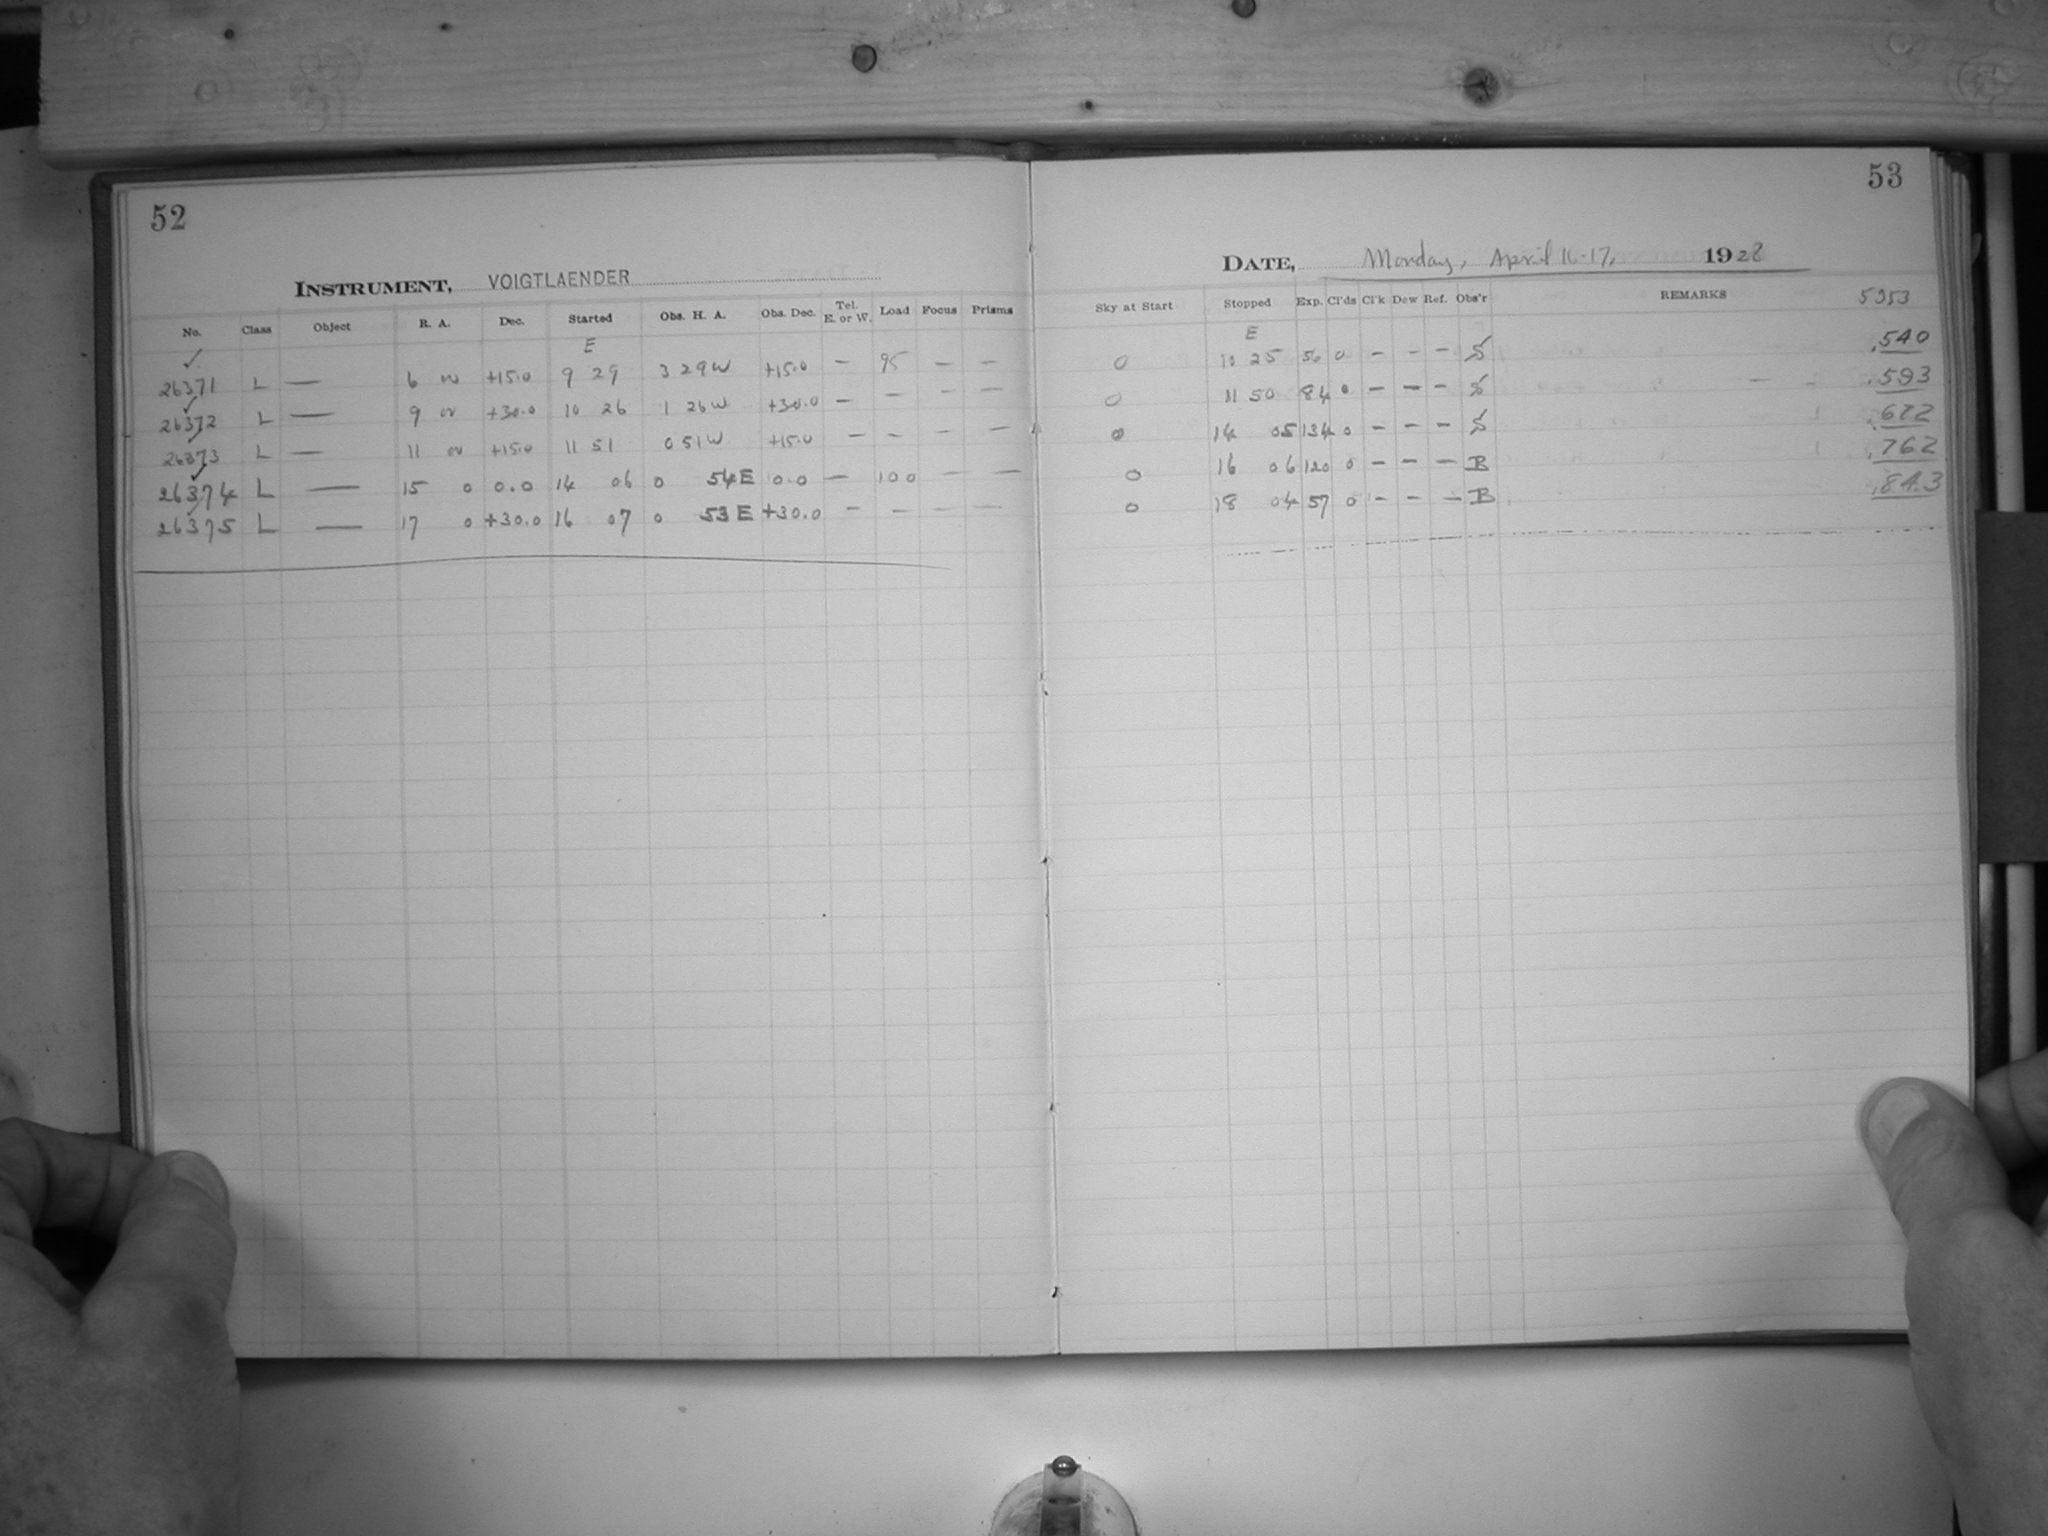 52
INSTRUMENT, VOIGTLAENDER
No. Class Object R. A. Dec. Started Obs. H. A. Obs. Dec. Tel. E. or W. Load Focus Prisms
E
26371 L — 6 00 +15.0 9 29 3 29 W +15.0 — 95 — —
26372 L — 9 00 +30.0 10 26 1 26 W +30.0 — — — —
26373 L — 11 00 +15.0 11 51 0 51 W +15.0 — — — —
26374 L — 15 0 0.0 14 06 0 54 E 0.0 — 100 — —
26375 L — 17 0 +30.0 16 07 0 53 E +30.0 — — — —
53
DATE, Monday, April 16-17, 1928
Sky at Start Stopped Exp. Cl'ds Cl'k Dew Ref. Obs'r REMARKS 5353
E
0 10 25 56 0 — — — S .540
0 11 50 84 0 — — — S .593
0 14 05 134 0 — — — S .672
0 16 06 120 0 — — — B .762
0 18 04 57 0 — — — B .843